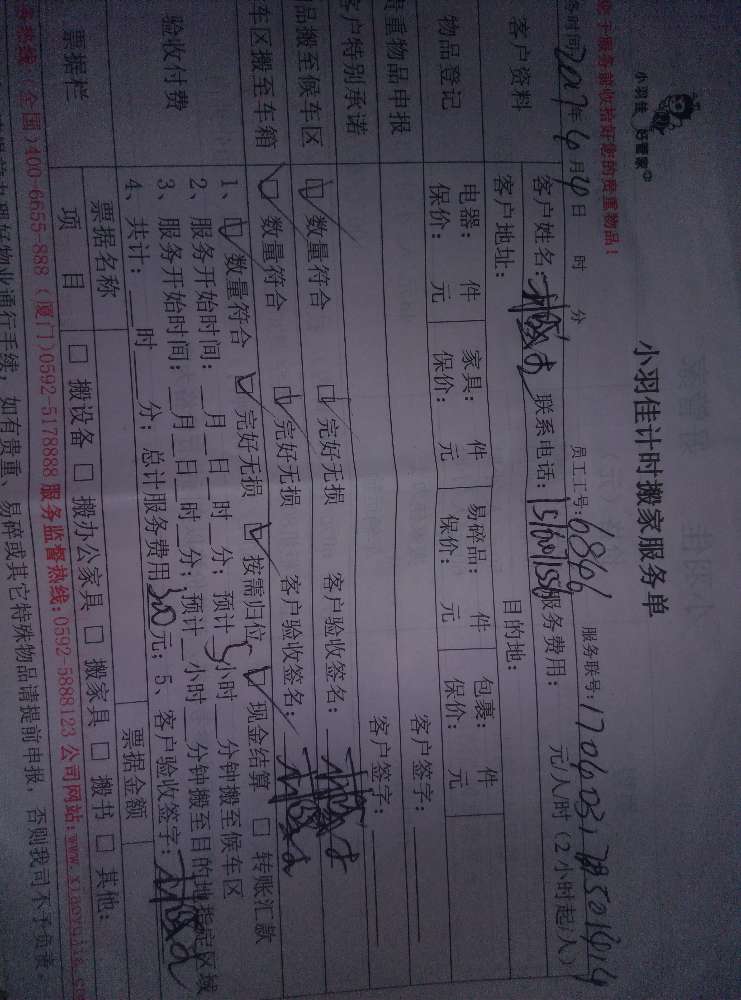 小羽佳 好管家
小羽佳计时搬家服务单
您于服务前收拾好您的贵重物品!
务时间: 2017年6月4日 时 分 员工工号: 6846 服务联号: 170603
客户资料
客户姓名: 联系电话: 服务费用: 元/人/时(2小时起/人)
客户地址: 目的地:
物品登记
电器: 件 家具: 件 易碎品: 件 包裹: 件
保价: 元 保价: 元 保价: 元 保价: 元
贵重物品申报 客户签字:
客户特别承诺 客户签字:
品搬至候车区 数量符合 完好无损 客户验收签名:
车区搬至车箱 数量符合 完好无损 客户验收签名:
验收付费
1、数量符合 完好无损 按需归位 现金结算 □ 转账汇款
2、服务开始时间: 月 日 时 分; 预计5小时 分钟搬至候车区
3、服务开始时间: 月 日 时 分; 预计 小时 分钟搬至目的地指定区域
4、共计: 时 分; 总计服务费用300元; 5、客户验收签字:
票据栏
票据名称 票据金额
项 目 □ 搬设备 □ 搬办公家具 □ 搬家具 □ 搬书 □ 其他:
务热线:(全国)400-6655-888 (厦门)0592-5178888 服务监督热线:0592-5888123 公司网站:www.xiaoyujia.co
办理好物业通行手续, 如有贵重、易碎或其它特殊物品请提前申报, 否则我司不予负责。